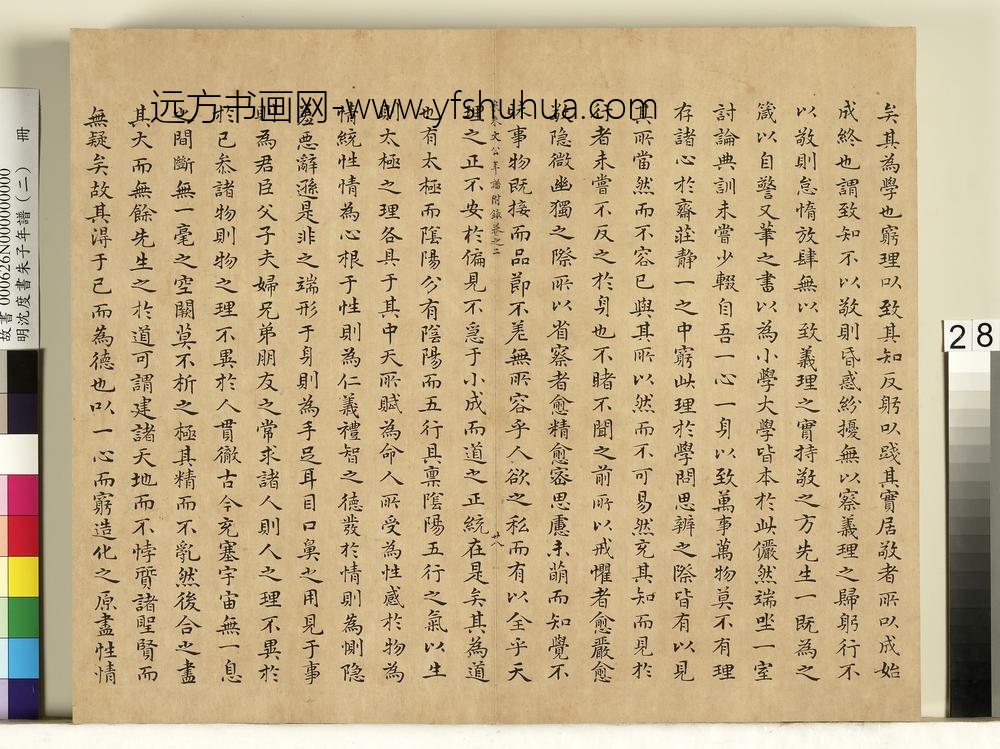 矣其為學也窮理以致其知反躬以踐其實居敬者所以成始
成終也謂致知不以敬則昏惑紛擾無以察義理之歸躬行不
以敬則怠惰放肆無以致義理之實持敬之方先生一既為之
箴以自警又筆之書以為小學大學皆本於此儼然端坐一室
討論典訓未嘗少輟自吾一心一身以致萬事萬物莫不有理
存諸心於齋莊静一之中窮此理於學問思辨之際皆有以見
其所當然而不容已與其所以然而不可易然充其知而見於
行者未嘗不反之於身也不睹不聞之前所以戒懼者愈嚴愈
敬隐微幽獨之際所以省察者愈精愈密思慮未萌而知覺不
昧事物既接而品節不差無所容乎人欲之私而有以全乎天
朱文公年譜附錄卷之二
廿八
理之正不安於偏見不急于小成而道之正統在是矣其為道
也有太極而陰陽分有陰陽而五行具禀陰陽五行之氣以生
則太極之理各具于其中天所賦為命人所受為性感於物為
情統性情為心根于性則為仁義禮智之德發於情則為惻隐
羞惡辭遜是非之端形于身則為手足耳目口鼻之用見于事
則為君臣父子夫婦兄弟朋友之常求諸人則人之理不異於
於己叅諸物則物之理不異於人貫徹古今充塞宇宙無一息
之間斷無一毫之空闕莫不析之極其精而不亂然後合之盡
其大而無餘先生之於道可謂建諸天地而不悖質諸聖賢而
無疑矣故其淂于己而為德也以一心而窮造化之原盡性情
远方书画网-www.yfshuhua.com
故書 000626N000000000
明沈度書朱子年譜(二) 冊
28